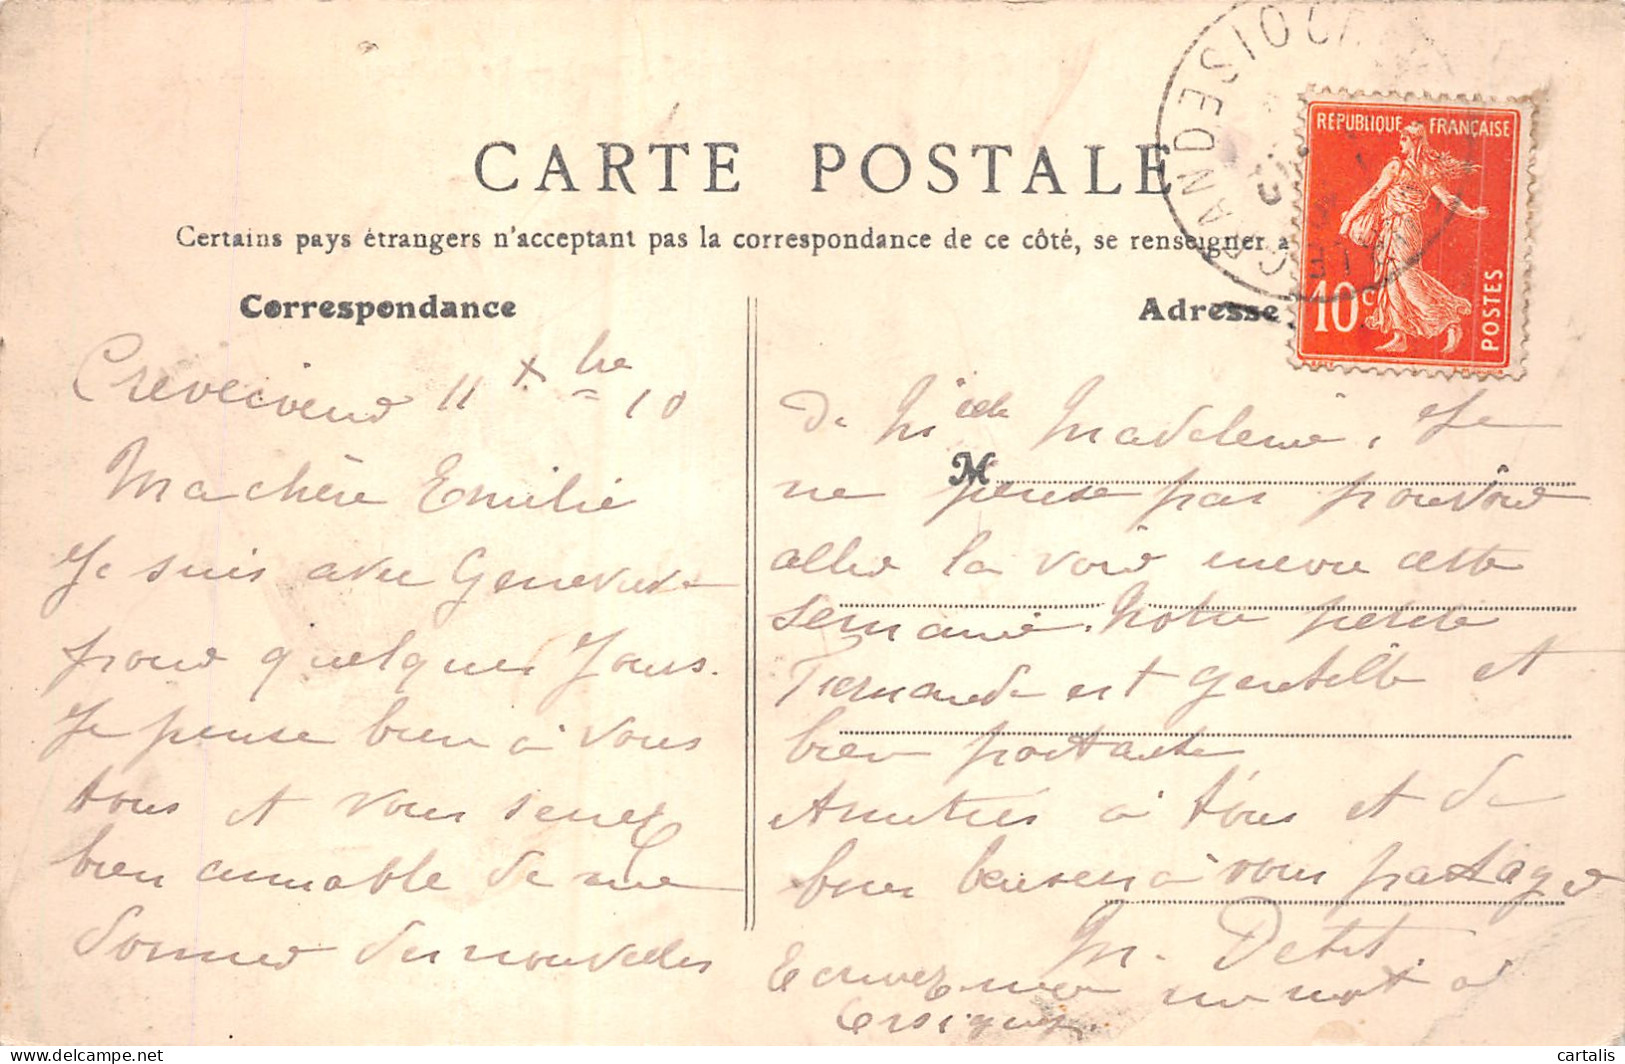 CARTE POSTALE
Certains pays étrangers n'acceptant pas la correspondance de ce côté, se renseigner a
Correspondance
11 Xbre 10
Ma chère Emilie
Je suis avec Genevieve
pour quelques Jours.
Je pense bien à vous
tous et vous serez
bien aimable de me
donner des nouvelles
Adresse
M
de Madeleine, Je
ne pense pas pouvoir
aller la voir encore cette
semaine. Notre petite
Fernande est gentille et
bien portante
Amitiés à tous et de
bons baisers à vous partager
M. Petit.
Ecrivez moi un mot à
REPUBLIQUE FRANÇAISE
10c
POSTES
GRANDS
OISE
cartalis
delcampe.net